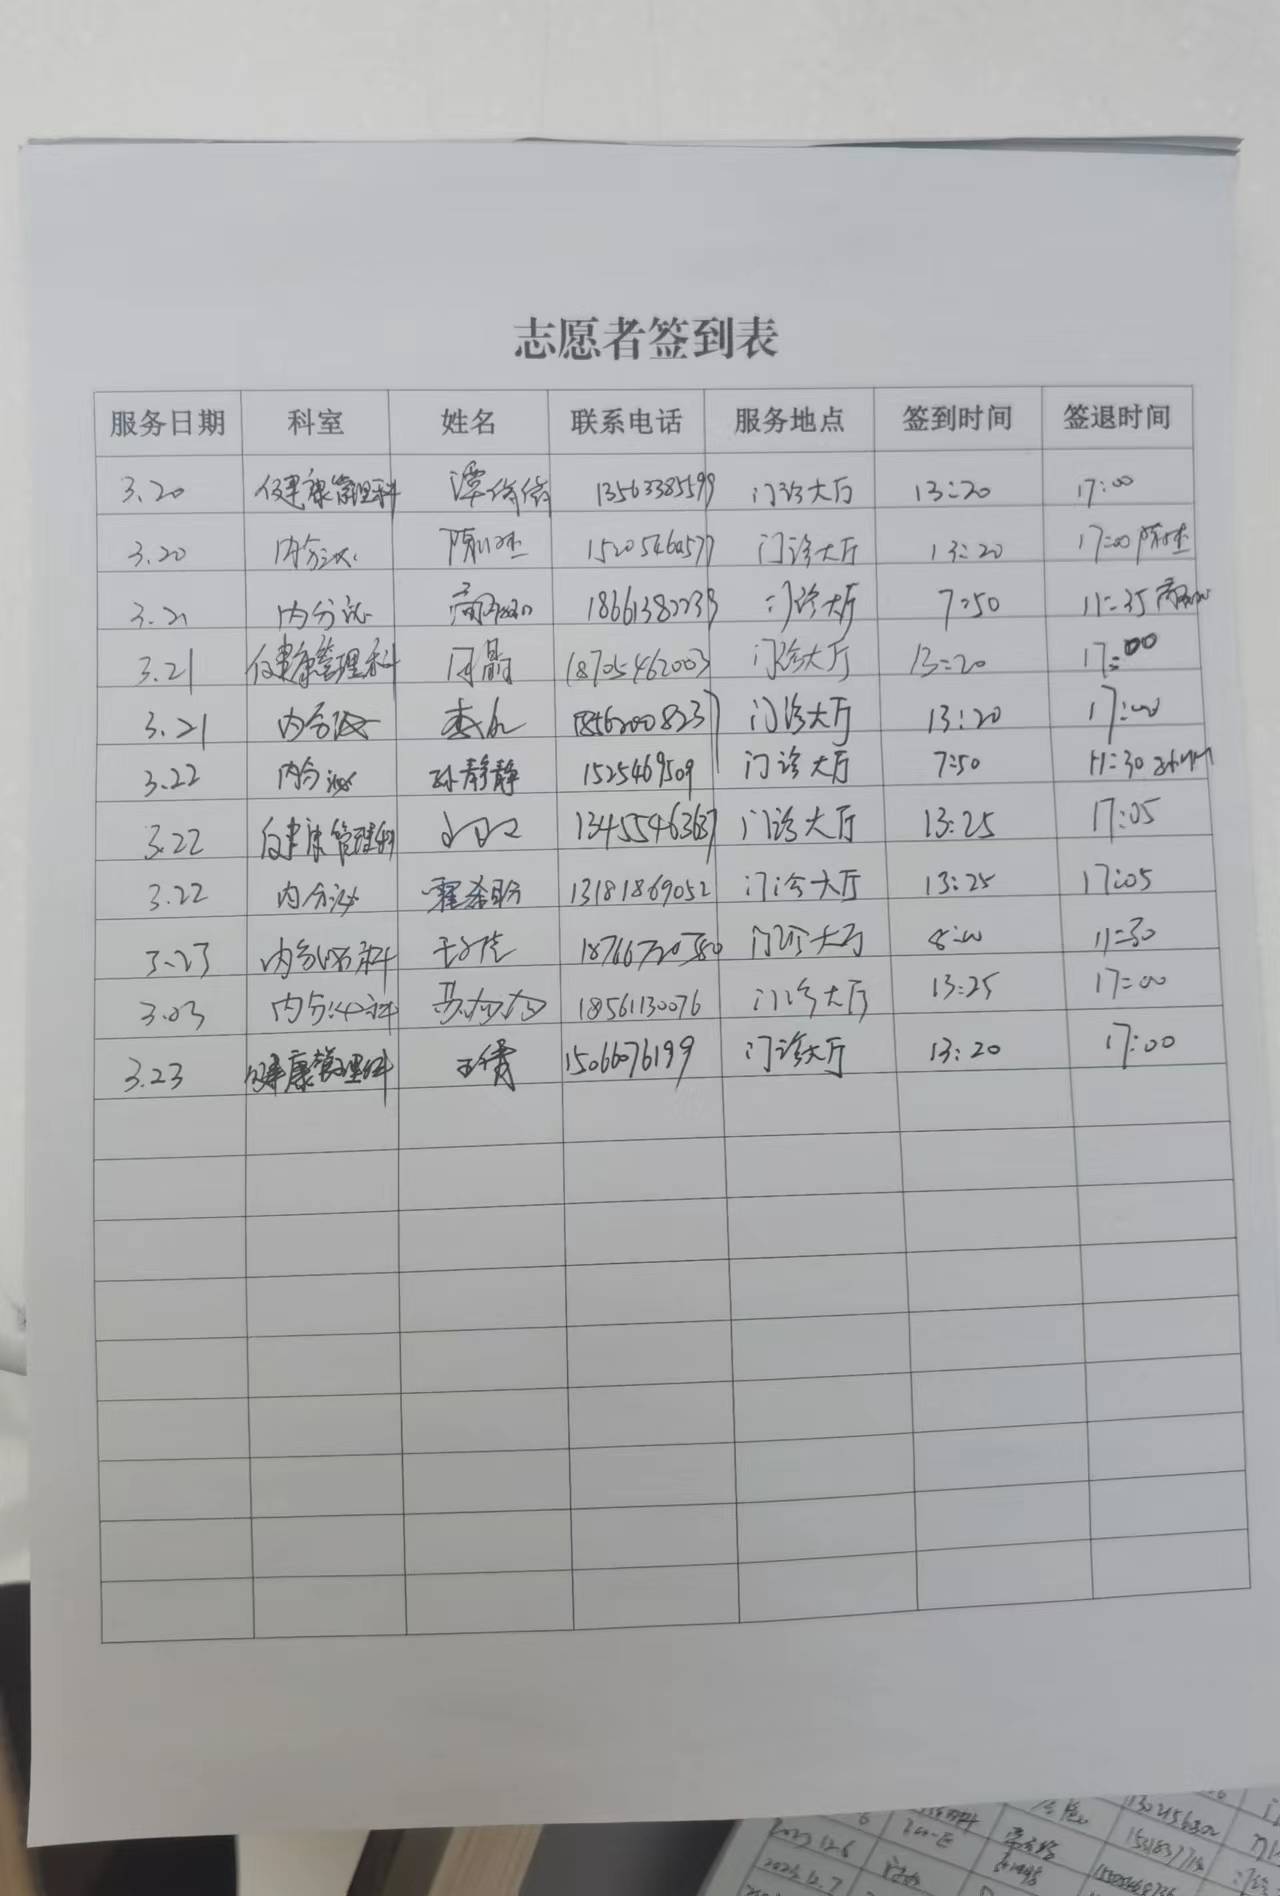 志愿者签到表
服务日期 科室 姓名 联系电话 服务地点 签到时间 签退时间
3.20 健康管理科 谭倩倩 13563385599 门诊大厅 13:20 17:00
3.20 内分泌 15205460577 门诊大厅 13:20 17:00
3.21 内分泌 门诊大厅 7:50 11:35
3.21 健康管理科 18705462003 门诊大厅 13:20 17:00
3.21 内分泌 18562008237 门诊大厅 13:20 17:00
3.22 内分泌 孙静静 1525469509 门诊大厅 7:50 11:30
3.22 健康管理科 13455463637 门诊大厅 13:25 17:05
3.22 内分泌 13181869052 门诊大厅 13:25 17:05
3.23 内分泌科 18766720380 门诊大厅 8:00 11:30
3.03 内分泌科 18561130076 门诊大厅 13:25 17:00
3.23 健康管理科 王倩 15066076199 门诊大厅 13:20 17:00